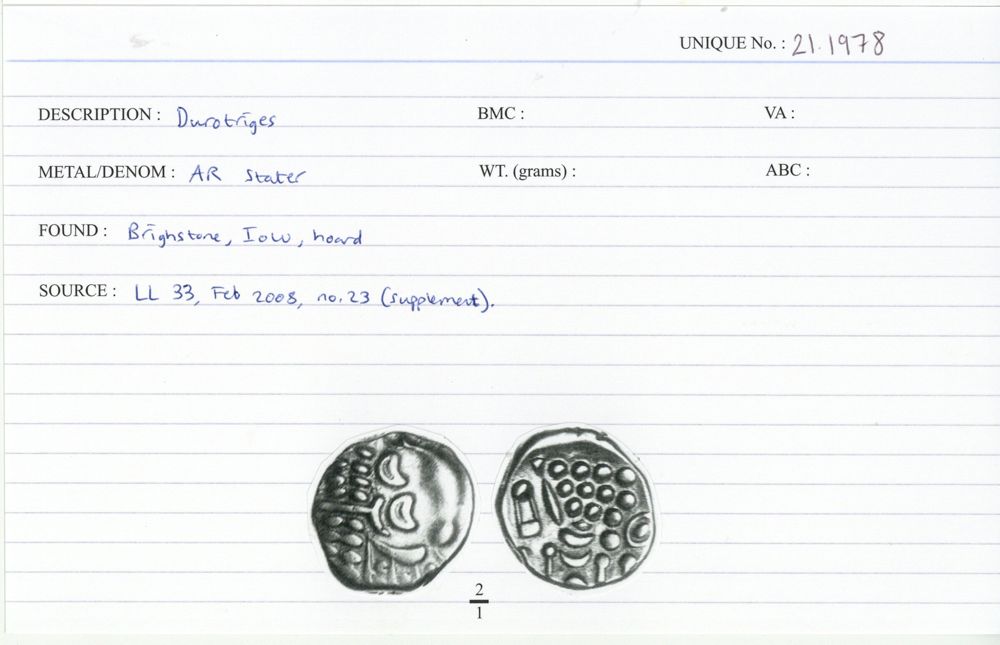 UNIQUE No. : 21.1978
DESCRIPTION : Durotriges BMC : VA :
METAL/DENOM : AR Stater WT. (grams) : ABC :
FOUND : Brighstone, IoW, hoard
SOURCE : LL 33, Feb 2008, no. 23 (supplement).
2
1